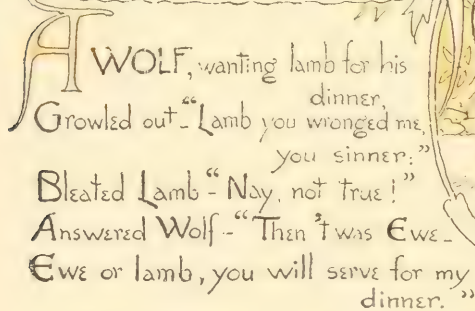 A WOLF, wanting lamb for his
dinner,
Growled out_"Lamb you wronged me,
you sinner;"
Bleated Lamb_"Nay, not true!"
Answered Wolf-"Then 't was Ewe_
Ewe or lamb, you will serve for my
dinner."